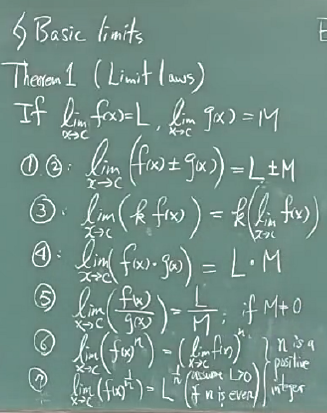 § Basic limits
Theorem 1 (Limit laws)
If lim_{x→c} f(x)=L, lim_{x→c} g(x)=M
①②: lim_{x→c} (f(x) ± g(x)) = L ± M
③: lim_{x→c} (k f(x)) = k(lim_{x→c} f(x))
④: lim_{x→c} (f(x)·g(x)) = L·M
⑤ lim_{x→c} (f(x)/g(x)) = L/M, if M≠0
⑥ lim_{x→c} (f(x)^n) = (lim_{x→c} f(x))^n } n is a positive integer
⑦ lim_{x→c} (f(x)^{1/n}) = L^{1/n} (assume L>0 if n is even)
E